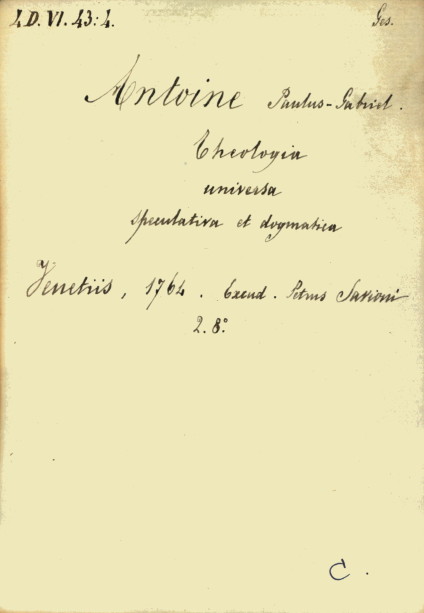 4 D. VI. 43:4. Ges.
Antoine Paulus-Gabriel.
Theologia
universa
speculativa et dogmatica
Venetiis, 1764. Excud. Petrus Savioni
2. 8°
C.